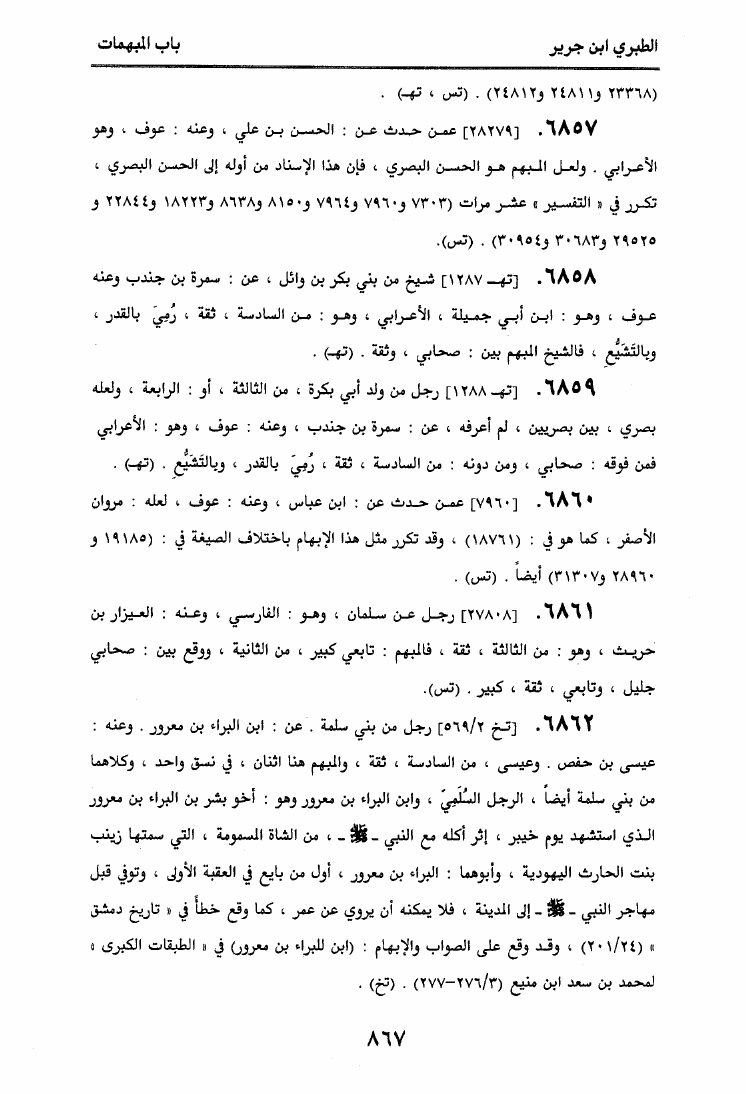 الطبري ابن جرير
باب المبهمات
(٢٣٣٦٨ و٢٤٨١١ و٢٤٨١٢) . (تس ، تهـ) .
٦٨٥٧. [٢٨٢٧٩] عمـن حـدث عـن : الحسـن بـن علي ، وعنه : عوف ، وهو
الأعـرابي . ولعـل المـبهم هـو الحسـن البصري ، فإن هذا الإسناد من أوله إلى الحسن البصري ،
تكـرر في « التفسـير » عشـر مرات (٧٣٠٣ و٧٩٦٠ و٧٩٦٤ و٨١٥٠ و٨٦٣٨ و١٨٢٢٣ و٢٢٨٤٤ و
٢٩٥٢٥ و٣٠٦٨٣ و٣٠٩٥٤) . (تس).
٦٨٥٨. [تهـ ١٢٨٧] شـيخ من بني بكر بن وائل ، عن : سمرة بن جندب وعنه
عـوف ، وهـو : ابـن أبـي جمـيلة ، الأعـرابي ، وهـو : مـن السادسة ، ثقة ، رُمِيَ بالقدر ،
وبالتَشَيُّعِ ، فالشيخ المبهم بين : صحابي ، وثقة . (تهـ) .
٦٨٥٩. [تهـ ١٢٨٨] رجل من ولد أبي بكرة ، من الثالثة ، أو : الرابعة ، ولعله
بصري ، بين بصريين ، لم أعرفه ، عن : سمرة بن جندب ، وعنه : عوف ، وهو : الأعرابي
فمن فوقه : صحابي ، ومن دونه : من السادسة ، ثقة ، رُمِيَ بالقدر ، وبالتَشَيُّعِ . (تهـ) .
٦٨٦٠. [٧٩٦٠] عمـن حـدث عن : ابن عباس ، وعنه : عوف ، لعله : مروان
الأصفر ، كما هو في : (١٨٧٦١) ، وقد تكرر مثل هذا الإبهام باختلاف الصيغة في : (١٩١٨٥ و
٢٨٩٦٠ و٣١٣٠٧) أيضاً . (تس) .
٦٨٦١. [٢٧٨٠٨] رجـل عـن سـلمان ، وهـو : الفارسـي ، وعـنه : العـيزار بن
حريـث ، وهو : من الثالثة ، ثقة ، فالمبهم : تابعي كبير ، من الثانية ، ووقع بين : صحابي
جليل ، وتابعي ، ثقة ، كبير . (تس).
٦٨٦٢. [تـخ ٥٦٩/٢] رجل من بني سلمة . عن : ابن البراء بن معرور . وعنه :
عيسى بن حفص . وعيسى ، من السادسة ، ثقة ، والمبهم هنا اثنان ، في نسق واحد ، وكلاهما
من بني سلمة أيضاً ، الرجل السُلَمِيّ ، وابن البراء بن معرور وهو : أخو بشر بن البراء بن معرور
الـذي استشهد يوم خيبر ، إثر أكله مع النبي ـ ﷺ ـ ، من الشاة المسمومة ، التي سمتها زينب
بنت الحارث اليهودية ، وأبوهما : البراء بن معرور ، أول من بايع في العقبة الأولى ، وتوفي قبل
مهاجر النبي ـ ﷺ ـ إلى المدينة ، فلا يمكنه أن يروي عن عمر ، كما وقع خطأً في « تاريخ دمشق
» (٢٠١/٢٤) ، وقـد وقع على الصواب والإبهام : (ابن للبراء بن معرور) في « الطبقات الكبرى »
لمحمد بن سعد ابن منيع (٢٧٦/٣-٢٧٧) . (تخ) .
٨٦٧